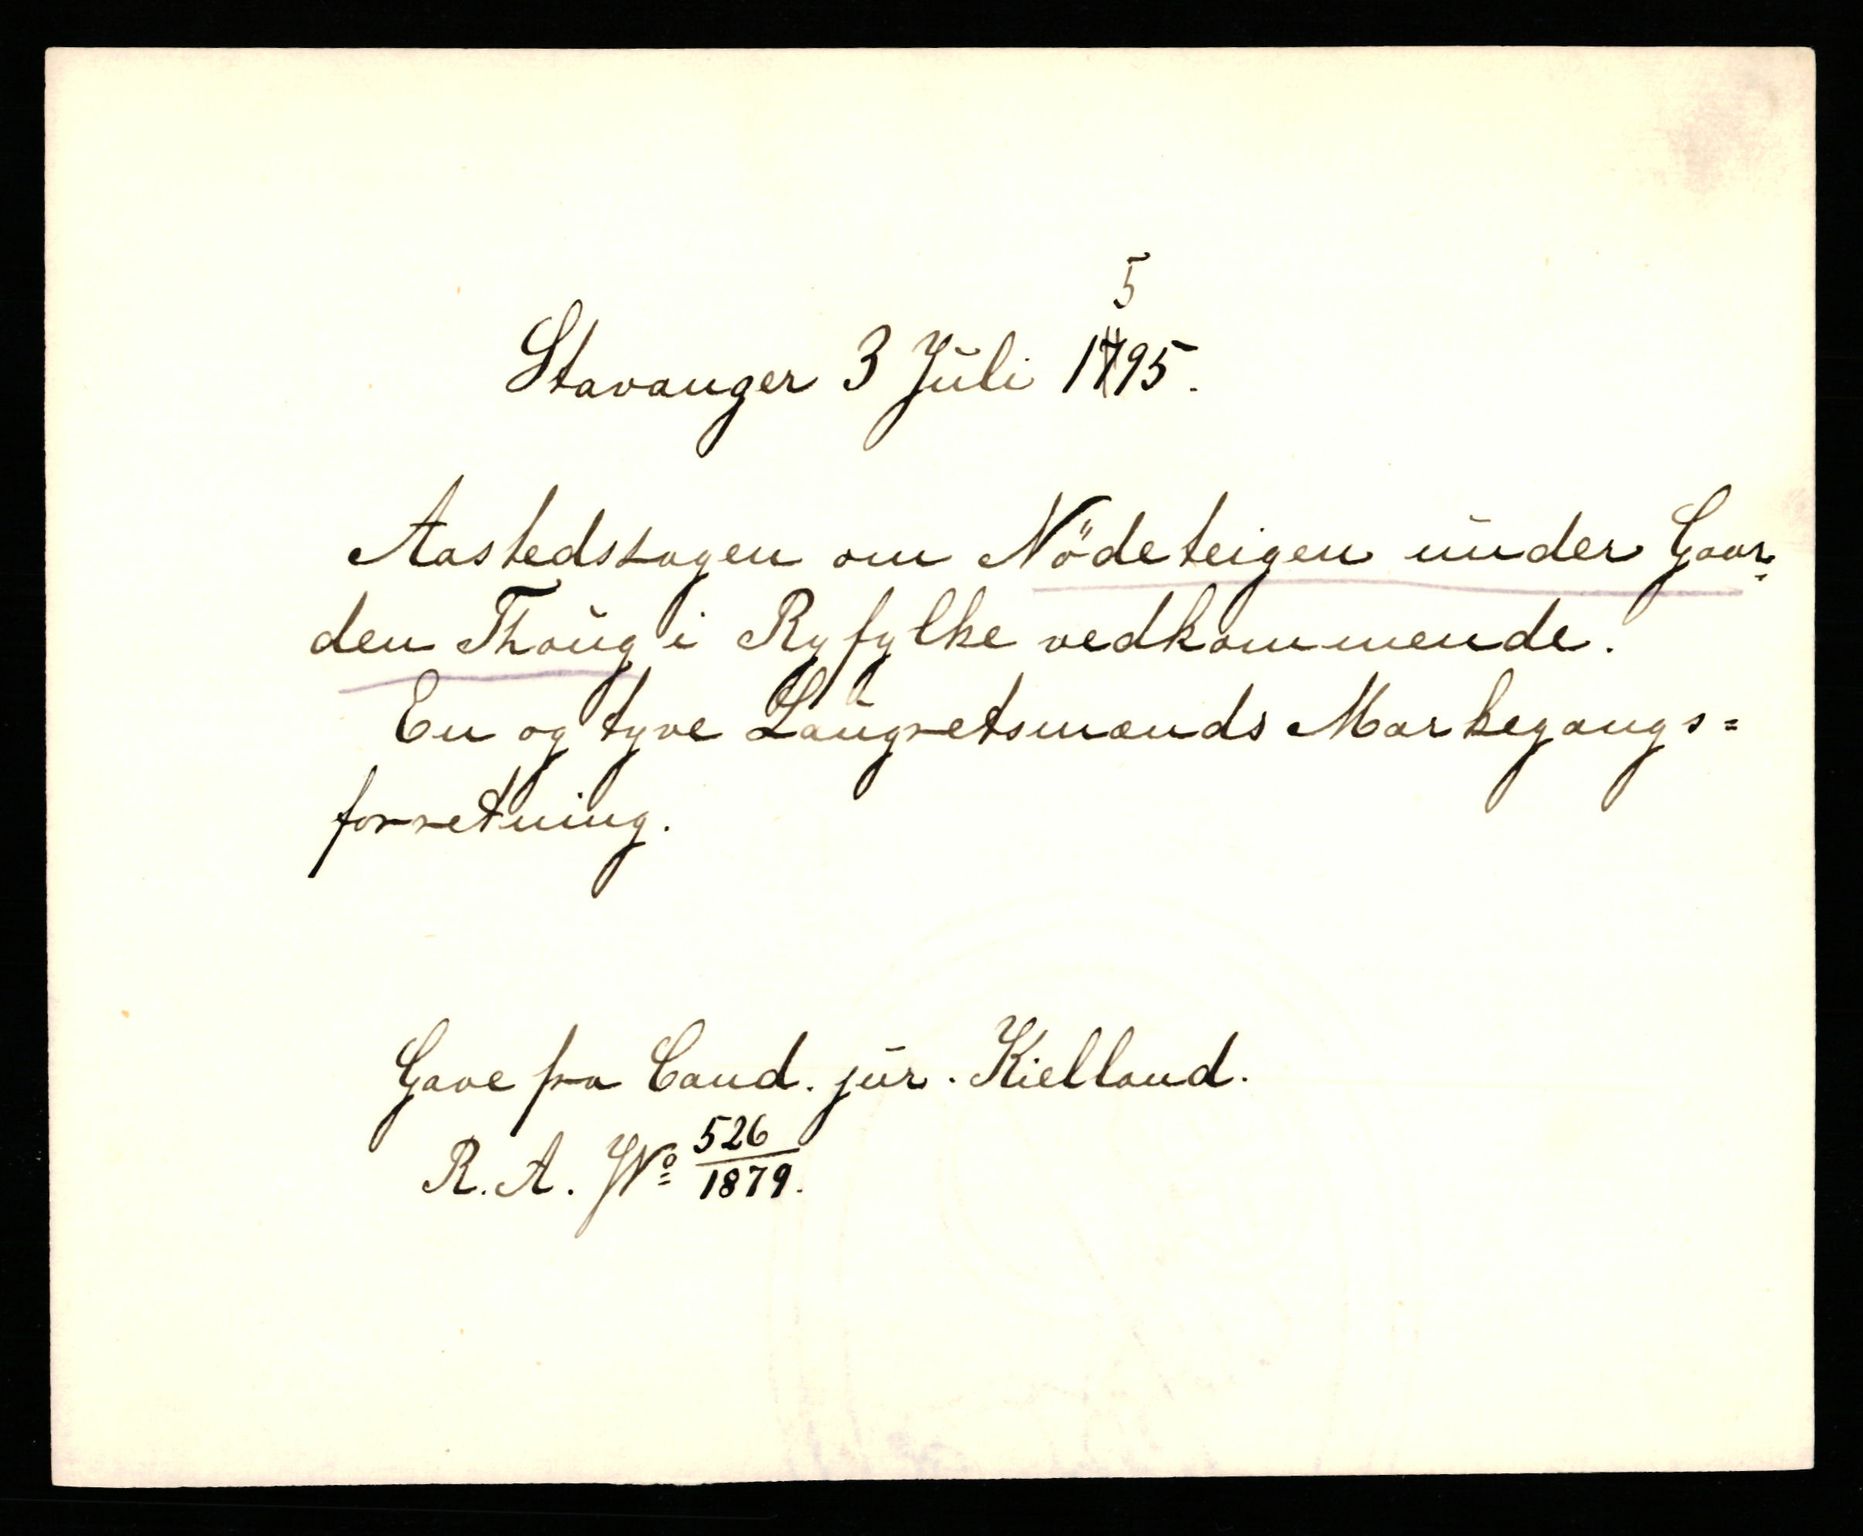 5
Stavanger 3 Juli 1795.
Aastedssagen om Nödeteigen under Gaar-
den Thoug i Ryfylke vedkommende.
En og tyve Laugretsmænds Markegangs=
forretning.
Gave fra Cand. jur. Kielland.
R. A. No 526/1879.